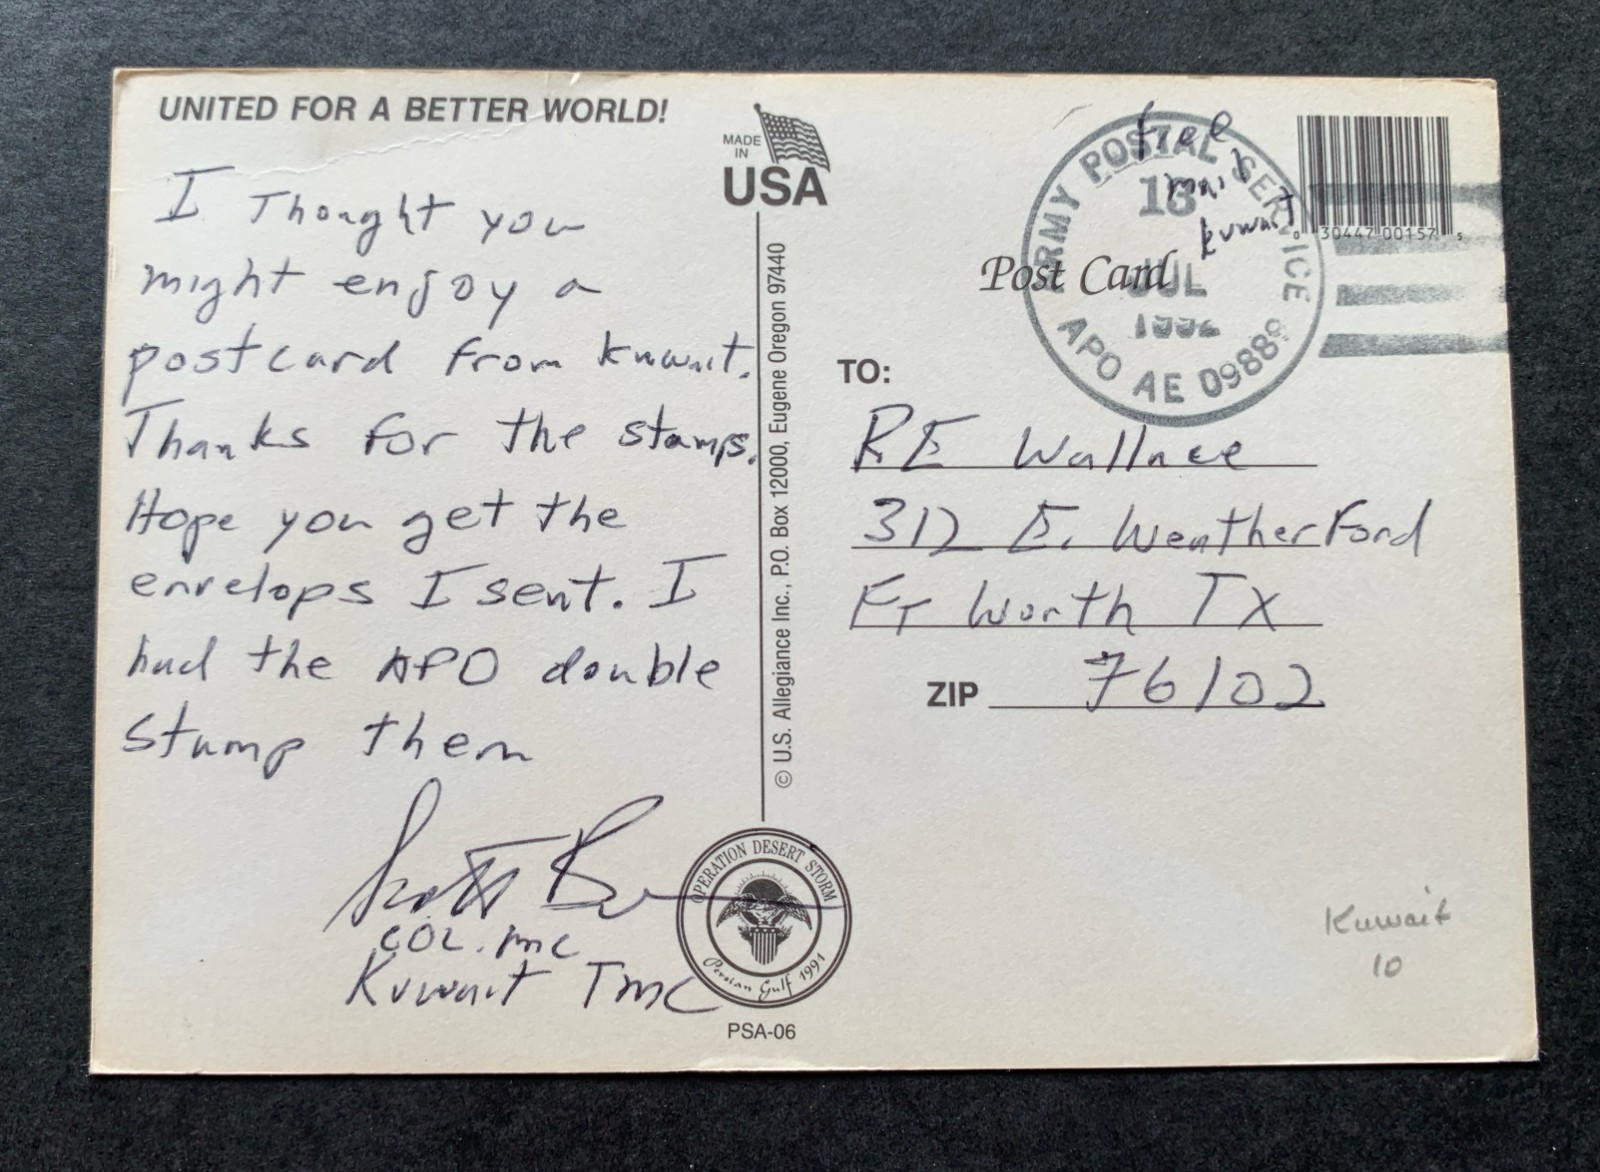 UNITED FOR A BETTER WORLD!
I Thought you
might enjoy a
postcard from Kuwait.
Thanks for the stamps.
Hope you get the
envelops I sent. I
had the APO double
stamp them
Scott
COL. MC
Kuwait TMC
MADE
IN
USA
© U.S. Allegiance Inc., P.O. Box 12000, Eugene Oregon 97440
OPERATION DESERT STORM
Persian Gulf 1991
PSA-06
Free
mail
Kuwait
ARMY POSTAL SERVICE
JUL
1992
APO AE 0988
0 30447 00157 5
Post Card
TO:
RE Wallace
312 E. Weatherford
FT Worth TX
ZIP 76102
Kuwait
10